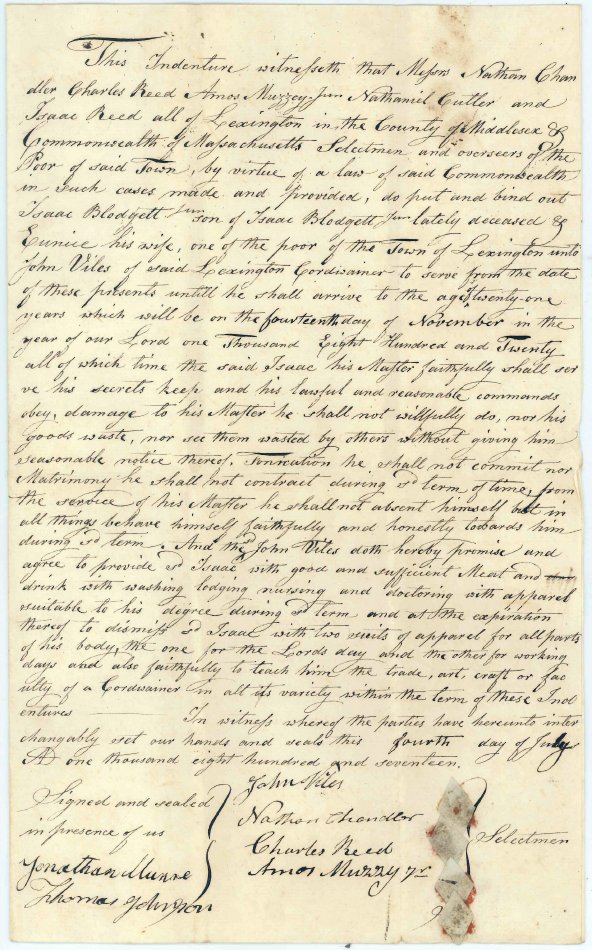 This Indenture witnesseth that Messrs Nathan Chan
dler Charles Reed Amos Muzzey Jun Nathaniel Cutler and
Isaac Reed all of Lexington in the County of Middlesex &
Commonwealth of Massachusetts Selectmen and overseers of the
Poor of said Town, by virtue of a law of said Commonwealth
in such cases made and provided, do put and bind out
Isaac Blodgett Jun son of Isaac Blodgett Jun lately deceased &
Eunice his wife, one of the poor of the Town of Lexington unto
John Viles of said Lexington Cordwainer to serve from the date
of these presents untill he shall arrive to the age of twenty-one
years which will be on the fourteenth day of November in the
year of our Lord one Thousand Eight Hundred and Twenty
all of which time the said Isaac his Master faithfully shall ser
ve his secrets keep and his lawful and reasonable commands
obey, damage to his Master he shall not willfully do, nor his
goods waste, nor see them wasted by others without giving him
seasonable notice thereof. Fonication he shall not commit nor
Matrimony he shall not contract during sd term of time, from
the service of his Master he shall not absent himself but in
all things behave himself faithfully and honestly towards him
during sd term. And the sd John Viles doth hereby promise and
agree to provide sd Isaac with good and sufficient Meat and
drink with washing lodging nursing and doctoring with apparel
suitable to his degree during sd term and at the expiration
thereof to dismiss sd Isaac with two suits of apparel for all parts
of his body, the one for the Lords day and the other for working
days and also faithfully to teach him the trade, art, craft or fac
ulty of a Cordwainer in all its variety within the term of these Ind
entures In witness whereof the parties have hereunto inter
changably set our hands and seals this fourth day of July
AD one thousand eight hundred and seventeen.
John Viles
Signed and sealed
in presence of us
Jonathan Munroe
Thomas Johnson
Nathan Chandler
Charles Reed
Amos Muzzy Jr
Selectmen